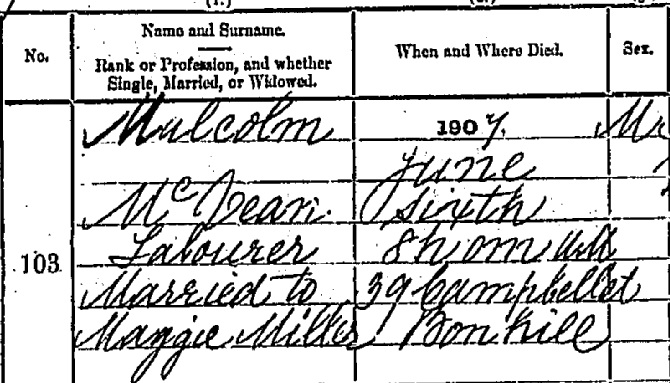 No.
Name and Surname.
Rank or Profession, and whether
Single, Married, or Widowed.
When and Where Died.
Sex.
103
Malcolm
McVean
Labourer
Married to
Maggie Miller
1907.
June
Sixth
8h om AM
39 Campbell St
Bonhill
M